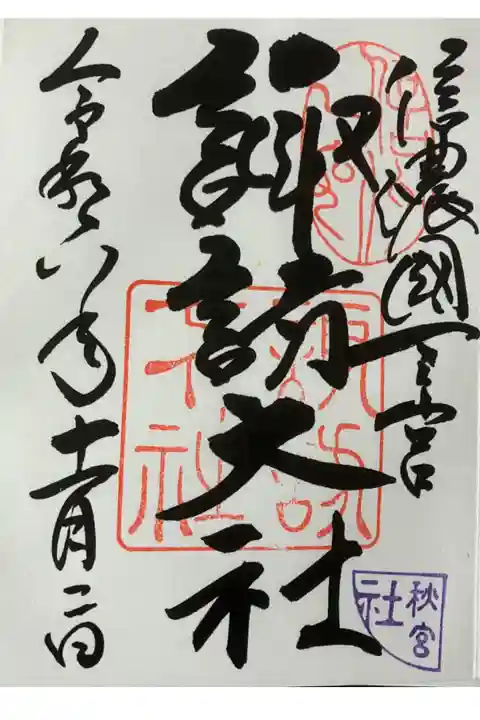 信濃國一之宮
諏訪大社
令和六年十一月二日
諏訪
大社
秋宮
社